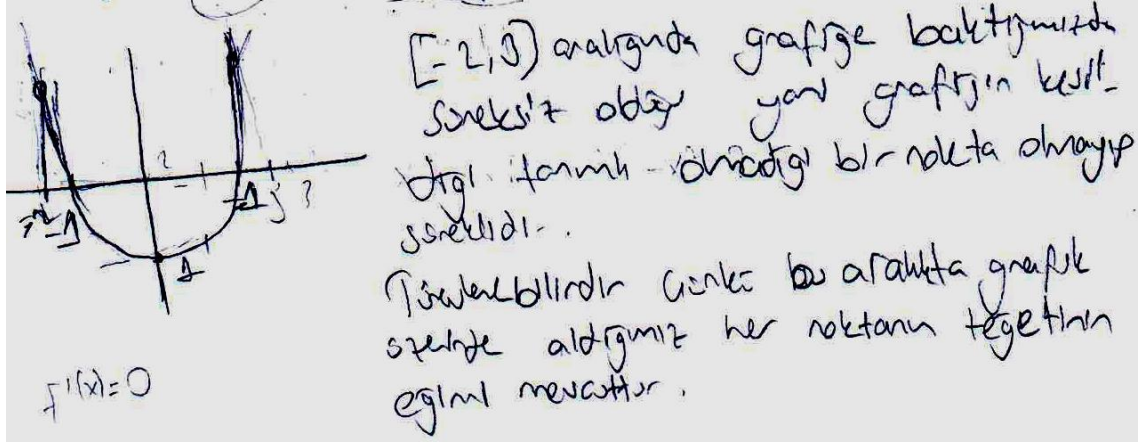 [-2,3) aralığında grafiğe baktığımızda
süreksiz olduğu yani grafiğin kesil-
diği tanımlı olmadığı bir nokta olmayıp
süreklidir.
Türevlenebilirdir çünkü bu aralıkta grafik
üzerinde aldığımız her noktanın teğetinin
eğimi mevcuttur.
-2 -1 1 3
1
f'(x)=0